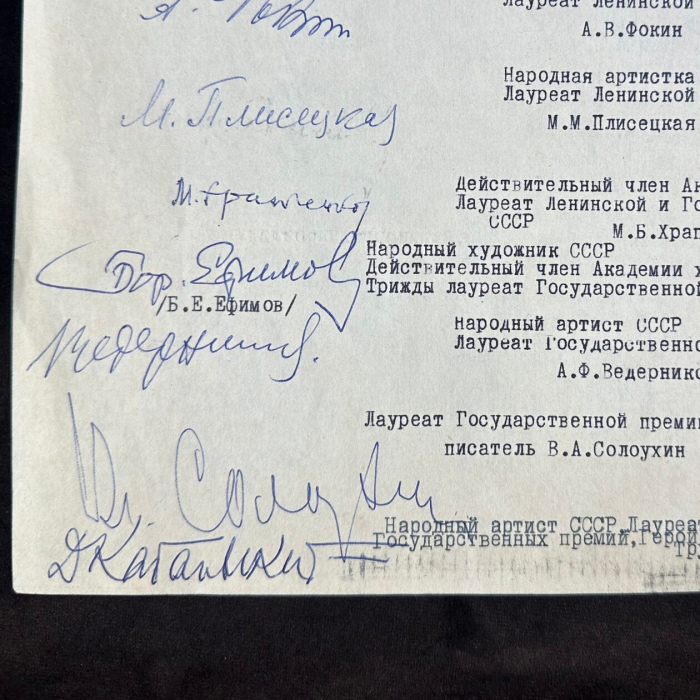 Лауреат Ленинской
А.В.Фокин
Народная артистка
Лауреат Ленинской
М. Плисецкая
М.М.Плисецкая
Действительный член Ак
Лауреат Ленинской и Го
СССР
М.Б.Храп
Народный художник СССР
Бор. Ефимов
Действительный член Академии х
Трижды лауреат Государственной
/Б.Е.Ефимов/
Народный артист СССР
Лауреат Государственно
А.Ф.Ведернико
Лауреат Государственной преми
писатель В.А.Солоухин
Вл. Солоухин
Народный артист СССР,Лауреа
Государственных премий,Герой
Тр